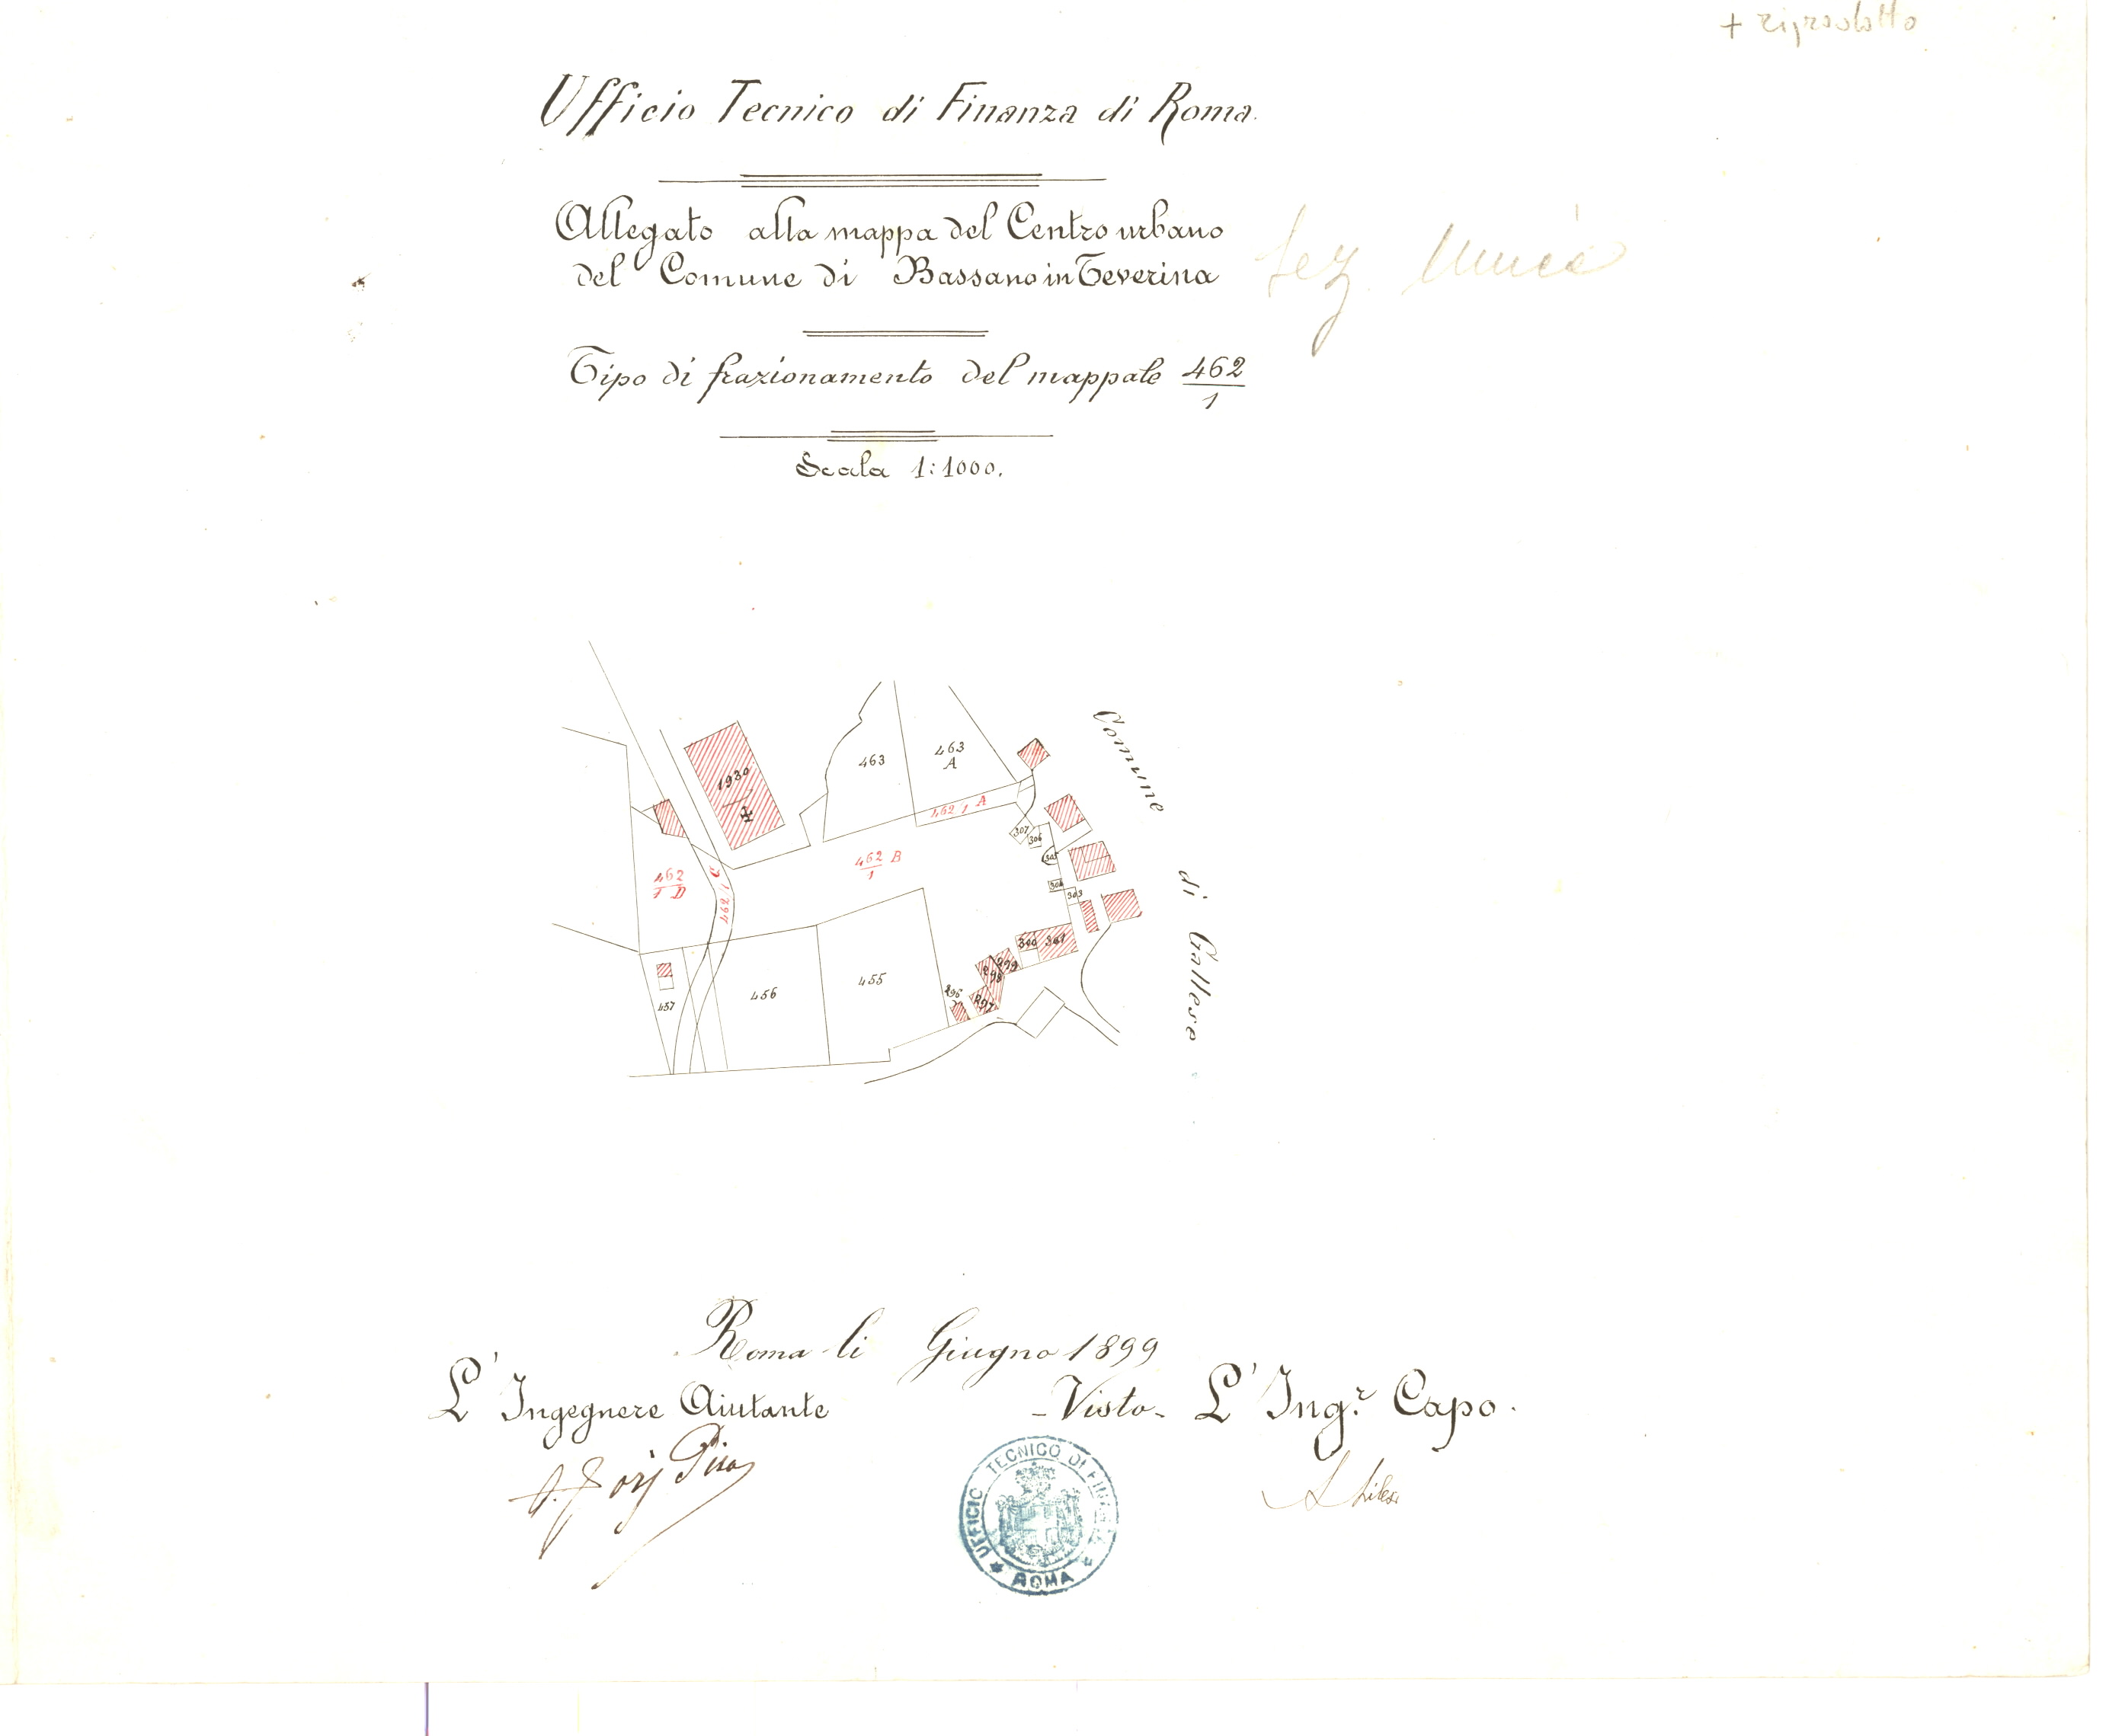 + riprodotto
Ufficio Tecnico di Finanza di Roma.
Allegato alla mappa del Centro urbano
del Comune di Bassano in Teverina
Sez. Unica
Tipo di frazionamento del mappale 462/1
Scala 1:1000.
1930
463
463
A
462 1 A
Comune
di Gallese
307
306
305
304
303
462/1 B
462/1 C
462
1 D
300
301
299
298
297
296
457
456
455
Roma li Giugno 1899
L'Ingegnere Aiutante
-Visto- L'Ing.r Capo.
UFFICIO TECNICO DI FINANZA
ROMA